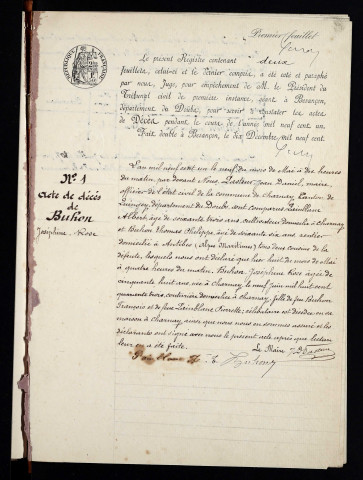 Premier feuillet
Le présent Registre contenant deux
feuillets, celui-ci et le dernier compris, a été coté et paraphé
par nous, Juge, pour empêchement de M. le Président du
Tribunal civil de première instance, séant à Besançon,
département du Doubs, pour servir à constater les actes
de Décès pendant le cours de l'année mil neuf cent un.
Fait double à Besançon, le dix Décembre, mil neuf cent.
N° 1
Acte de décès
de
Buhon
Joséphine Rose
L'an mil neuf cent un le neuf du mois de Mai à dix heures
du matin, par devant Nous, Jean Daniel, maire,
officier de l'état civil de la commune de Charnay, Canton de
Quingey, département du Doubs, ont comparu
Albert, âgé de soixante trois ans, cultivateur domicilié à Charnay
et Buhon Thomas Philippe, âgé de soixante six ans, rentier
domicilié à Antibes (Alpes Maritimes) tous deux cousins de la
défunte, lesquels nous ont déclaré que hier huit du mois de Mai
à quatre heures du matin, Buhon Joséphine Rose âgée de
cinquante huit ans née à Charnay, le neuf juin mil huit cent
quarante trois, couturière domiciliée à Charnay, fille de feu Buhon
François et de feue Pierrette; célibataire est décédée en sa
maison à Charnay, ainsi que nous nous en sommes assuré et les
déclarants ont signé avec nous le présent acte après que lecture
leur en a été faite.
Le Maire
Buhon